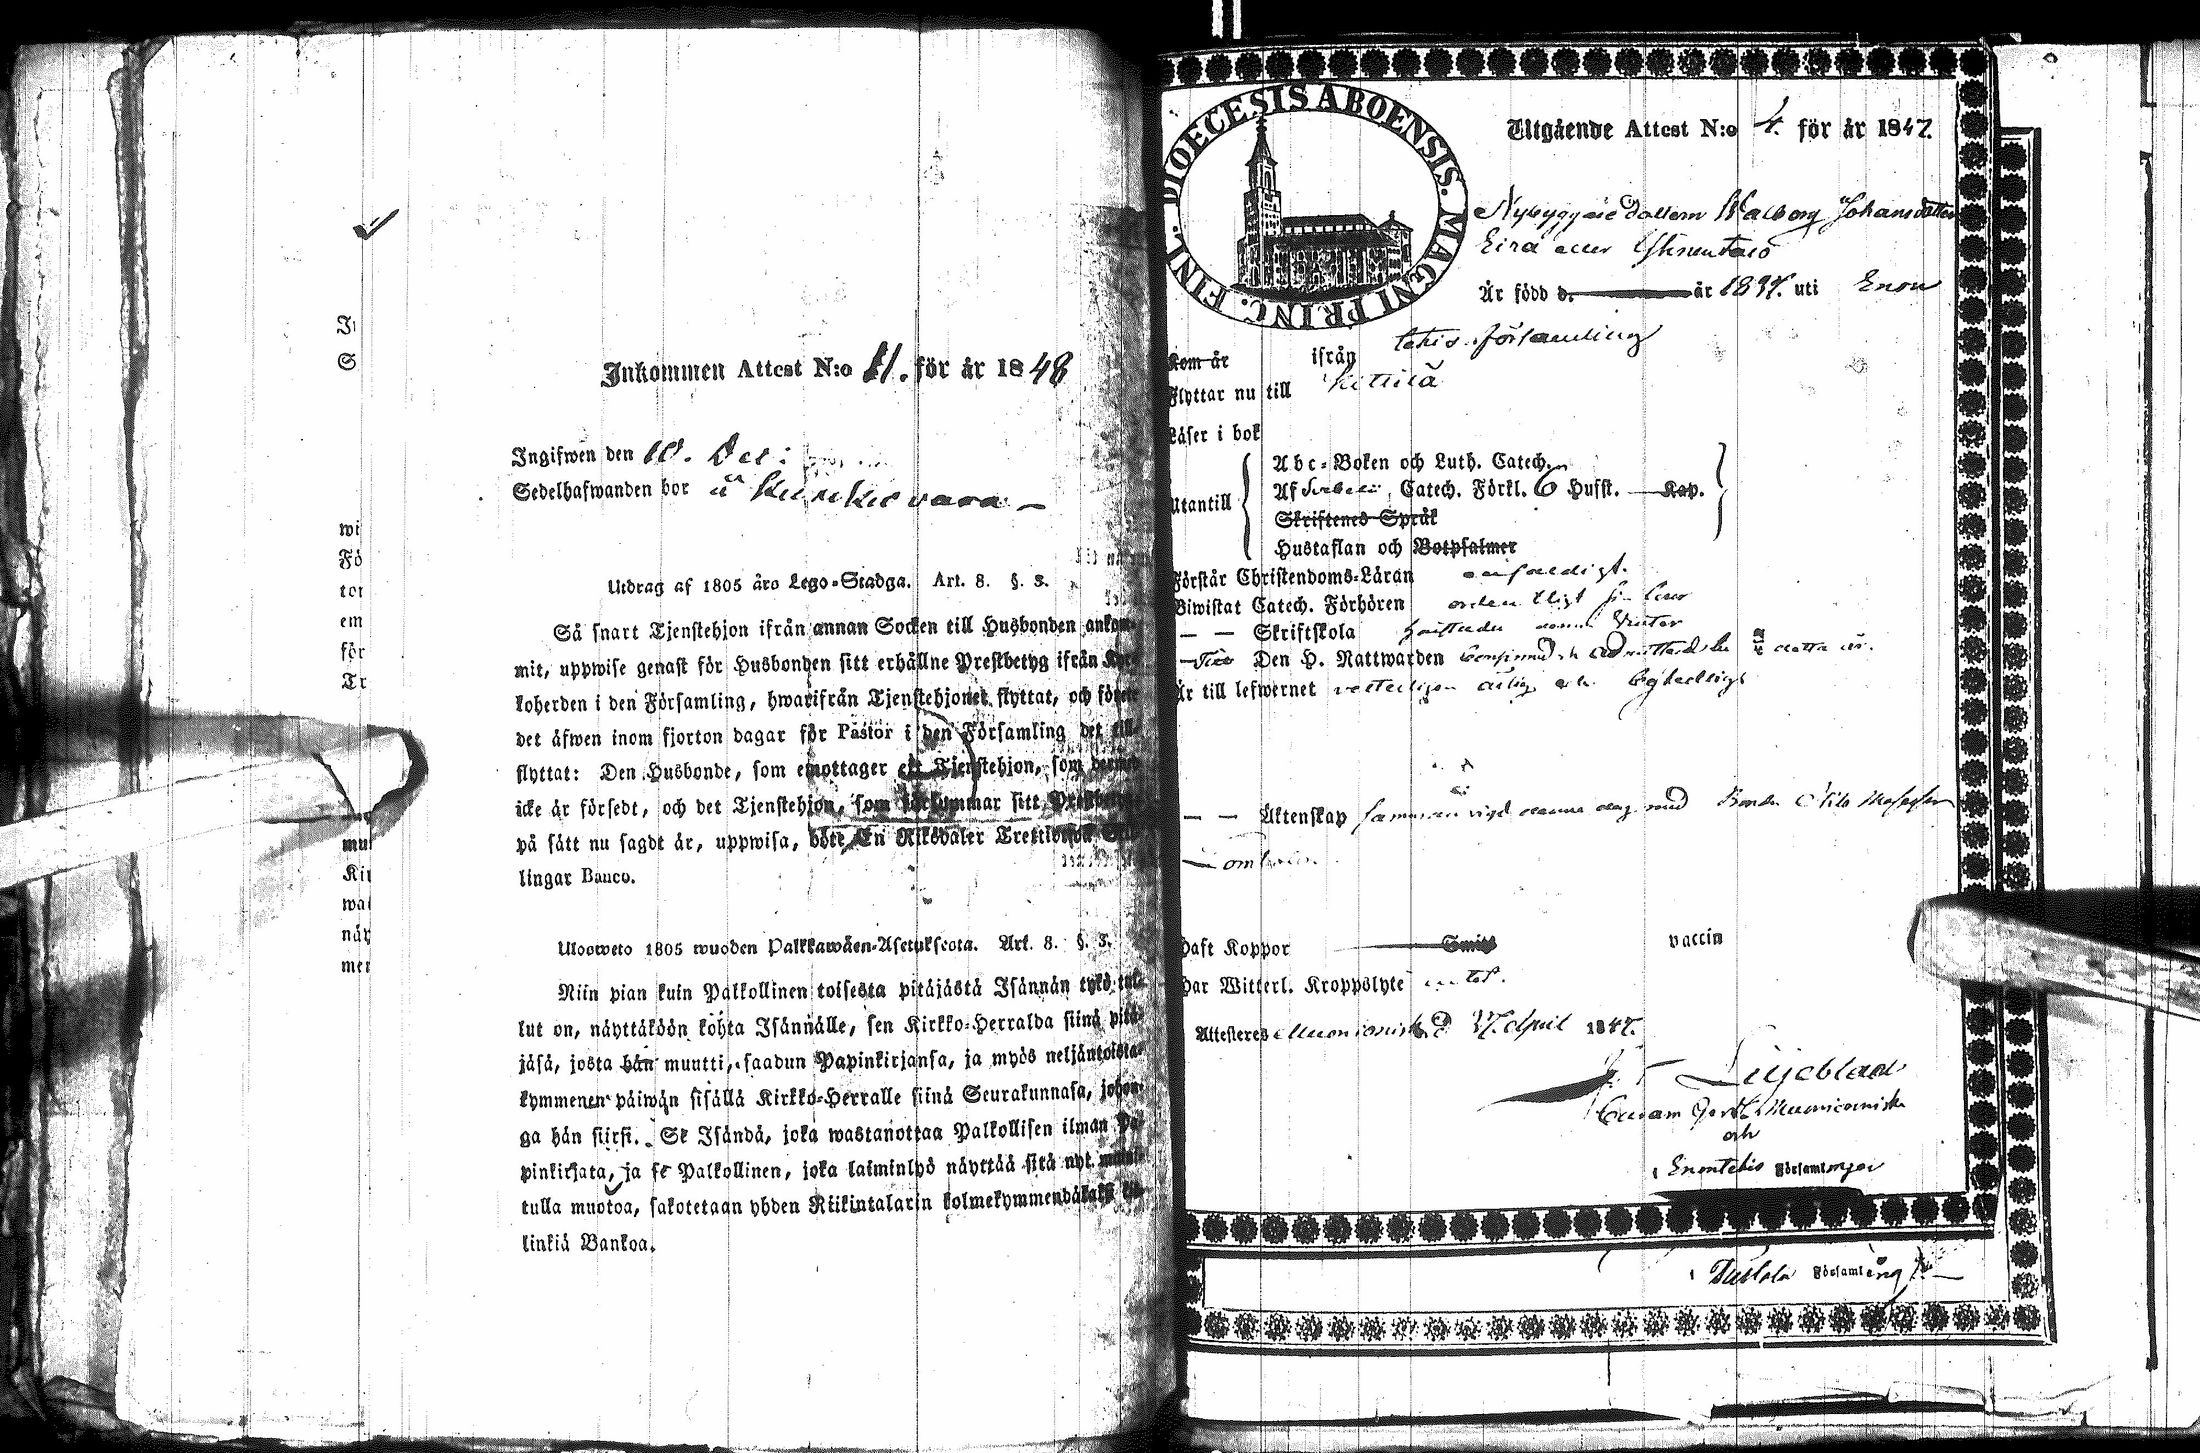 I
S
wi
Fö
tor
em
för
Tr
mul
Kir
wat
näy
mer
Inkommen Attest N:o 11. för år 1848
Ingifwen den 10. Dec:
Sedelhafwanden bor å Kuukuvara
Utdrag af 1805 års Lego-Stadga. Art. 8. §. 3.
Så snart Tjenstehjon ifrån annan Socken till Husbonden ankom-
mit, uppwise genast för Husbonden sitt erhållne Prestbetyg ifrån Kyr-
koherden i den Församling, hwarifrån Tjenstehjonet flyttat, och förete
det äfwen inom fjorton dagar för Pastor i den Församling det till-
flyttat: Den Husbonde, som emottager ett Tjenstehjon, som dermed
icke är försedt, och det Tjenstehjon, som försummar sitt Prestbetyg
på sätt nu sagdt är, uppwisa, böte En Riksdaler Trettiotwå Skil-
lingar Banco.
Ulosweto 1805 wuoden Palkkawäen-Asetuksesta. Art. 8. §. 3.
Niin pian kuin Palkollinen toisesta pitäjästä Isännän tykö tul-
lut on, näyttäköön kohta Isännälle, sen Kirkko-Herralda siinä pitä-
jäsä, josta hän muutti, saadun Papinkirjansa, ja myös neljäntoista-
kymmenen päiwän sisällä Kirkko-Herralle siinä Seurakunnasa, johon-
ga hän siirsi. Se Isändä, joka wastanottaa Palkollisen ilman Pa-
pinkirjata, ja se Palkollinen, joka laiminlyö näyttää sitä nyt maini-
tulla muotoa, sakotetaan yhden Riikintalarin kolmekymmendäkaksi kil-
linkiä Bankoa.
DIOECESIS ABOENSIS. MAGNI PRINC. FINL.
Utgående Attest N:o 4. för år 1847.
Nybyggaredottern Walborg Johansdotter
Eira eller
Är född d. år 18 uti Enon
tekis församling
Kom år ifrån
Flyttar nu till Kittilä
Läser i bok
Abc-Boken och Luth. Catech.
Af Svebelii Catech. Förkl. 6 Hufst. Kap.
Utantill
Skriftenes Språk
Hustaflan och Botpsalmer
Förstår Christendoms-Läran enfaldigt.
Biwistat Catech. Förhören ordentligt
— — Skriftskola denna Vinter
Den H. Nattwarden detta år.
Är till lefwernet ärlig och
— — Äktenskap sammanvigd denna dag med Bonden
Haft Koppor Smitt vaccin
Har Witterl. Kroppslyte intet.
Attesteres Muonionisk d. 27. April 1847.
Liljeblad
Muonioniska
och
Enontekis Församlingar
Församling